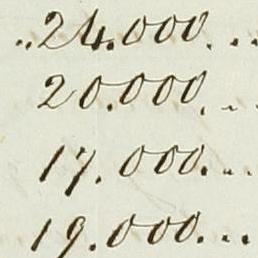 ..24.000. ..
20.000. ..
17.000. ..
19.000. ..